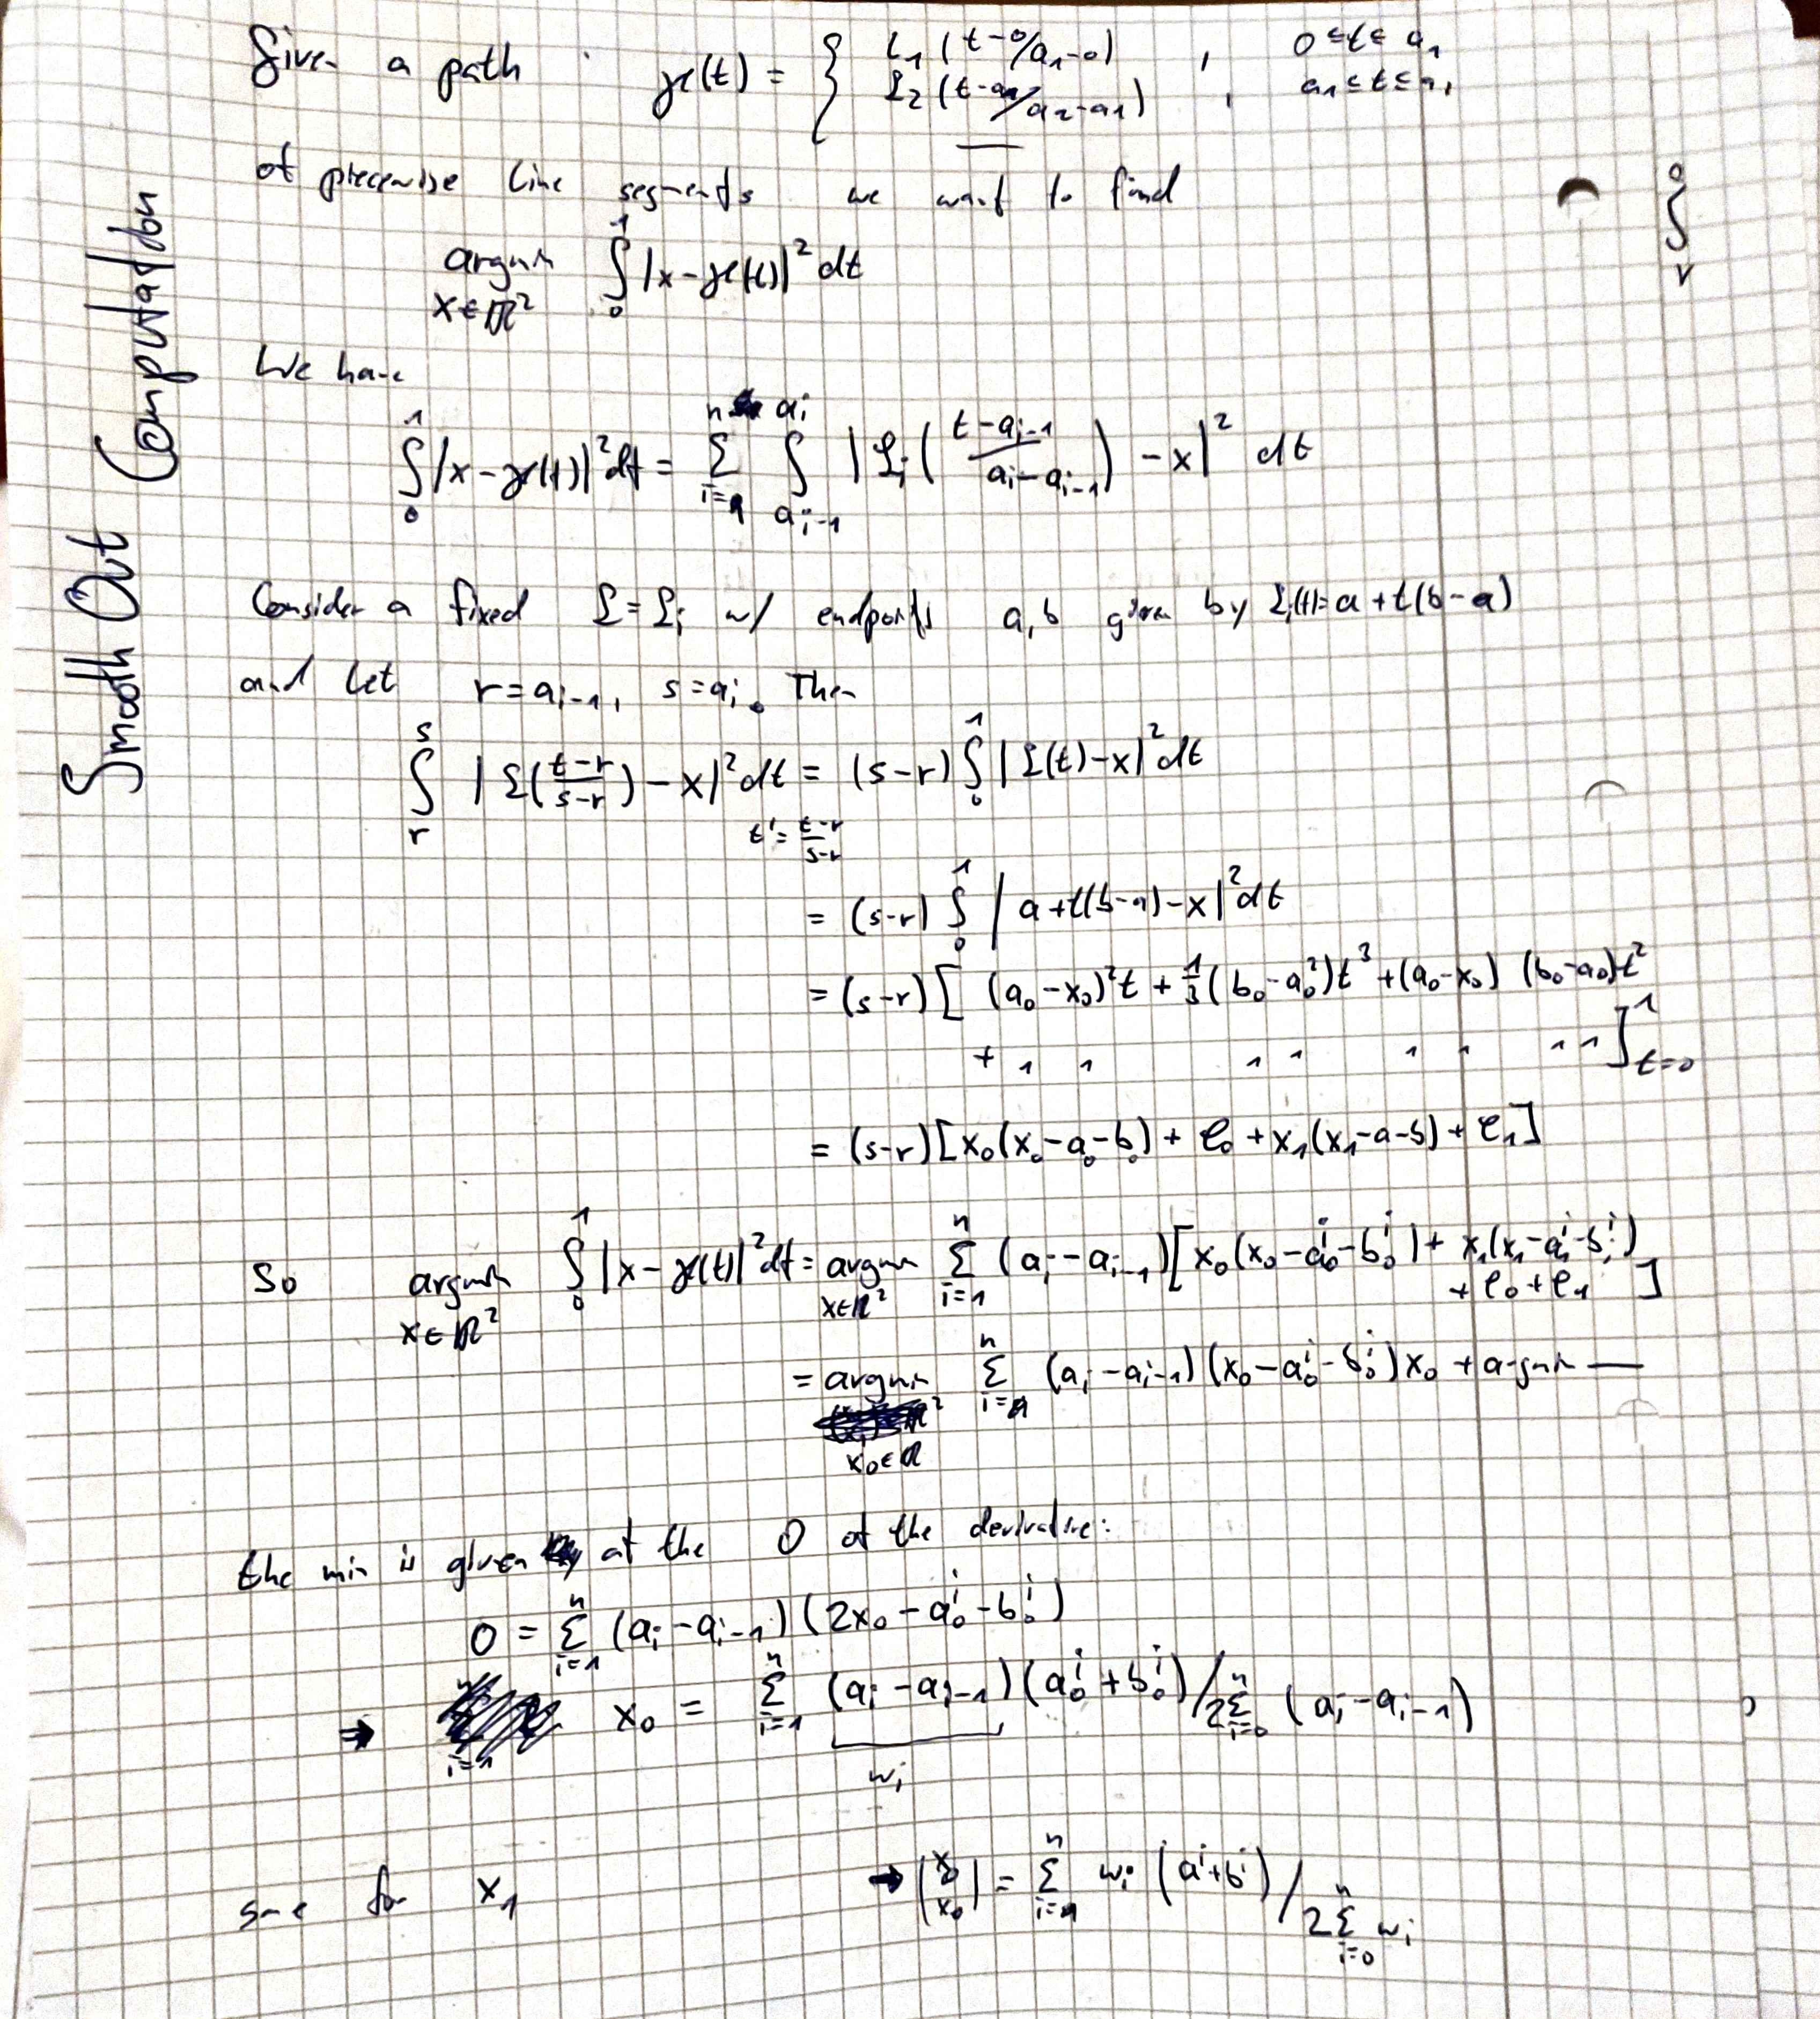 Smooth Out Computation
Given a path γ(t) = { L₁(t-0/a₁-0) , 0≤t≤a₁
L₂(t-a₁/a₂-a₁) , a₁≤t≤a₁
of piecewise line segments we want to find
argmin_{x∈ℝ²} ∫₀¹ |x-γ(t)|² dt
We have
∫₀¹ |x-γ(t)|² dt = Σ_{i=1}^{n} ∫_{a_{i-1}}^{a_i} |L_i((t-a_{i-1})/(a_i-a_{i-1})) - x|² dt
Consider a fixed L=L_i w/ endpoints a,b given by L(t)=a+t(b-a)
and let r=a_{i-1}, s=a_i. Then
∫_r^s |L((t-r)/(s-r)) - x|² dt = (s-r) ∫₀¹ |L(t)-x|² dt
t'=(t-r)/(s-r)
= (s-r) ∫₀¹ |a+t(b-a)-x|² dt
= (s-r) [ (a₀-x₀)²t + 1/3(b₀-a₀²)t³ + (a₀-x₀)(b₀-a₀)t²
+ " " " " ]_{t=0}^{1}
= (s-r)[x₀(x₀-a₀-b₀) + e₀ + x₁(x₁-a-b) + e₁]
So argmin_{x∈ℝ²} ∫₀¹ |x-γ(t)|² dt = argmin_{x∈ℝ²} Σ_{i=1}^{n} (a_i-a_{i-1})[x₀(x₀-a₀^i-b₀^i) + x₁(x₁-a₁^i-b₁^i)
+ e₀ + e₁ ]
= argmin_{x₀∈ℝ} Σ_{i=1}^{n} (a_i-a_{i-1})(x₀-a₀^i-b₀^i)x₀ + argmin —
the min is given at the 0 of the derivative:
0 = Σ_{i=1}^{n} (a_i-a_{i-1})(2x₀-a₀^i-b₀^i)
⇒ x₀ = Σ_{i=1}^{n} (a_i-a_{i-1})(a₀^i+b₀^i) / 2Σ_{i=0}^{n} (a_i-a_{i-1})
w_i
same for x₁ → (x₀ x₀) = Σ_{i=1}^{n} w_i (a^i+b^i) / 2Σ_{i=0}^{n} w_i
∫_r^0